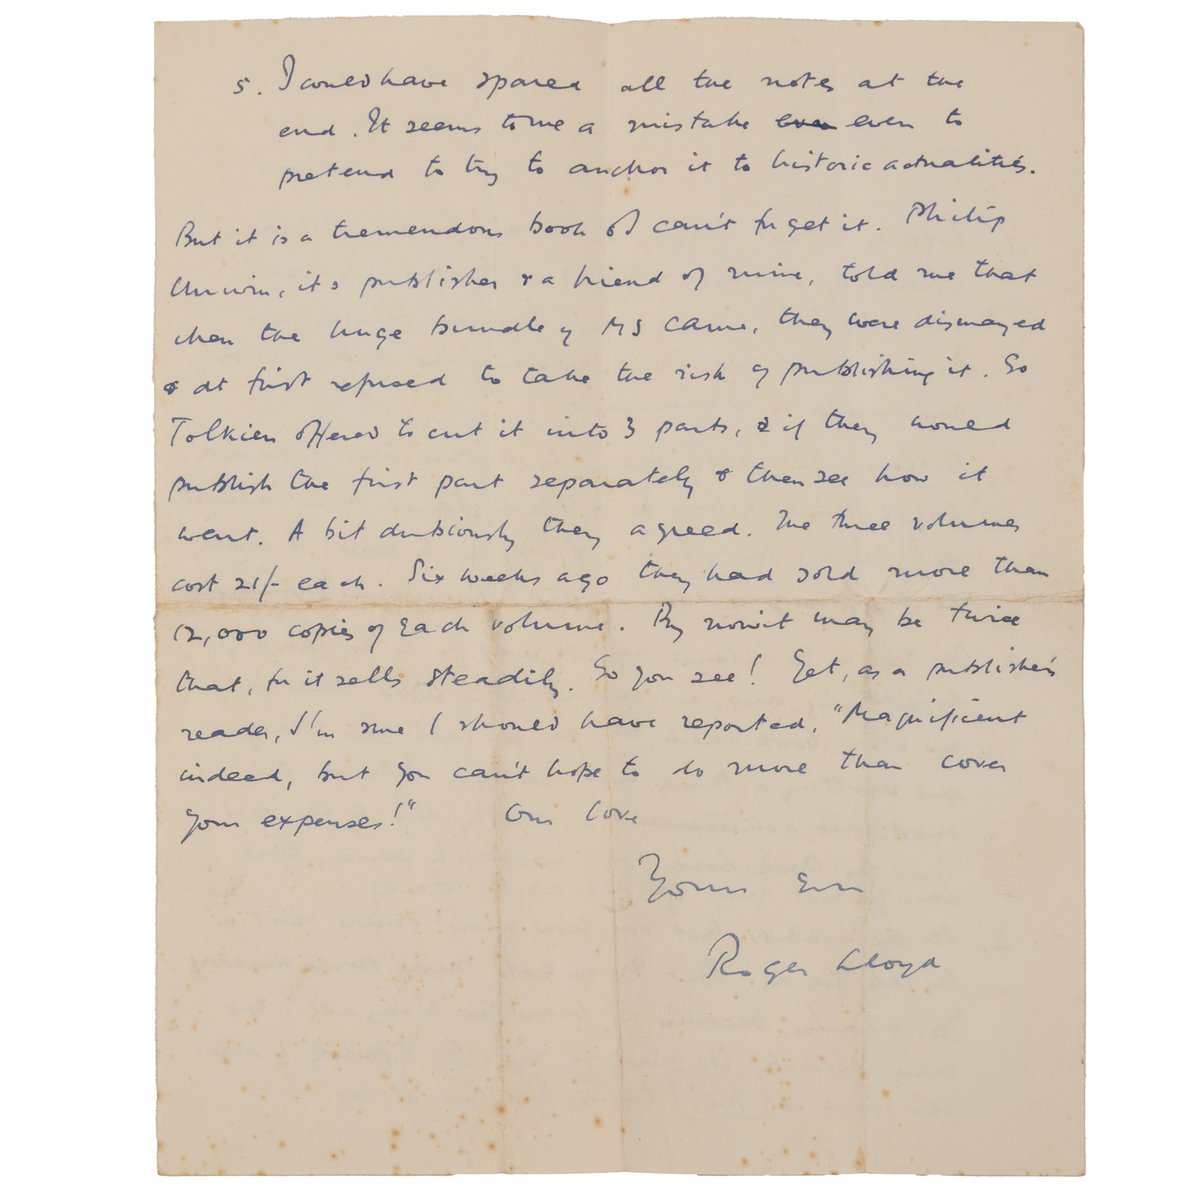 5. I could have spared all the notes at the
end. It seems to me a mistake even even to
pretend to try to anchor it to historic actualities.
But it is a tremendous book & I can't forget it. Philip
Unwin, its publisher & a friend of mine, told me that
when the huge bundle of MS came, they were dismayed
& at first refused to take the risk of publishing it. So
Tolkien offered to cut it into 3 parts, & if they would
publish the first part separately & then see how it
went. A bit dubiously they agreed. The three volumes
cost 21/- each. Six weeks ago they had sold more than
12,000 copies of each volume. By now it may be twice
that, for it sells steadily. So you see! Yet, as a publisher's
reader, I'm sure I should have reported, "Magnificent
indeed, but you can't hope to do more than cover
your expenses!" Our love
Yours ever
Roger Lloyd